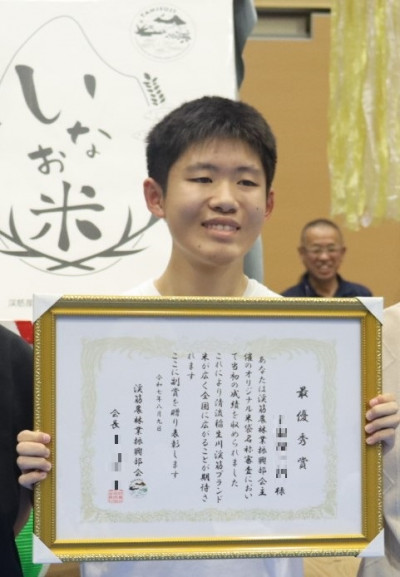 いな
お米
最優秀賞
様
あなたは渓筋農林業振興部会主
催のオリジナル米袋名称審査におい
て当初の成績を収められました
これにより清流稲生川渓筋ブランド
米が広く全国に広がることが期待さ
れます
ここに副賞を贈り表彰します
令和七年八月九日
渓筋農林業振興部会
会長